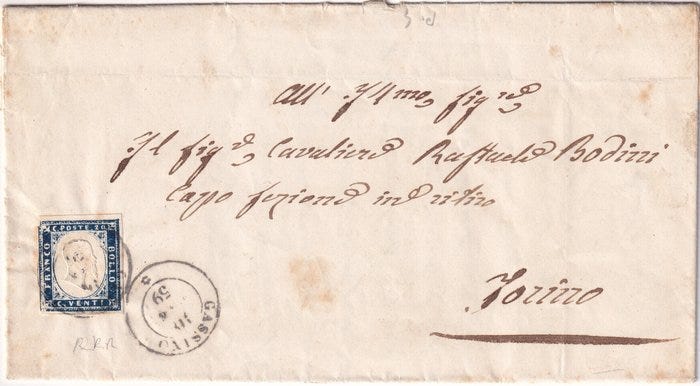 All' Ill.mo Sig.re
Il Sig.re Cavaliere Raffaele Bodini
Capo Sezione in ritiro
Torino
C. POSTE 20
FRANCO
BOLLO
C. VENTI
GASSINO
59
R.R.R